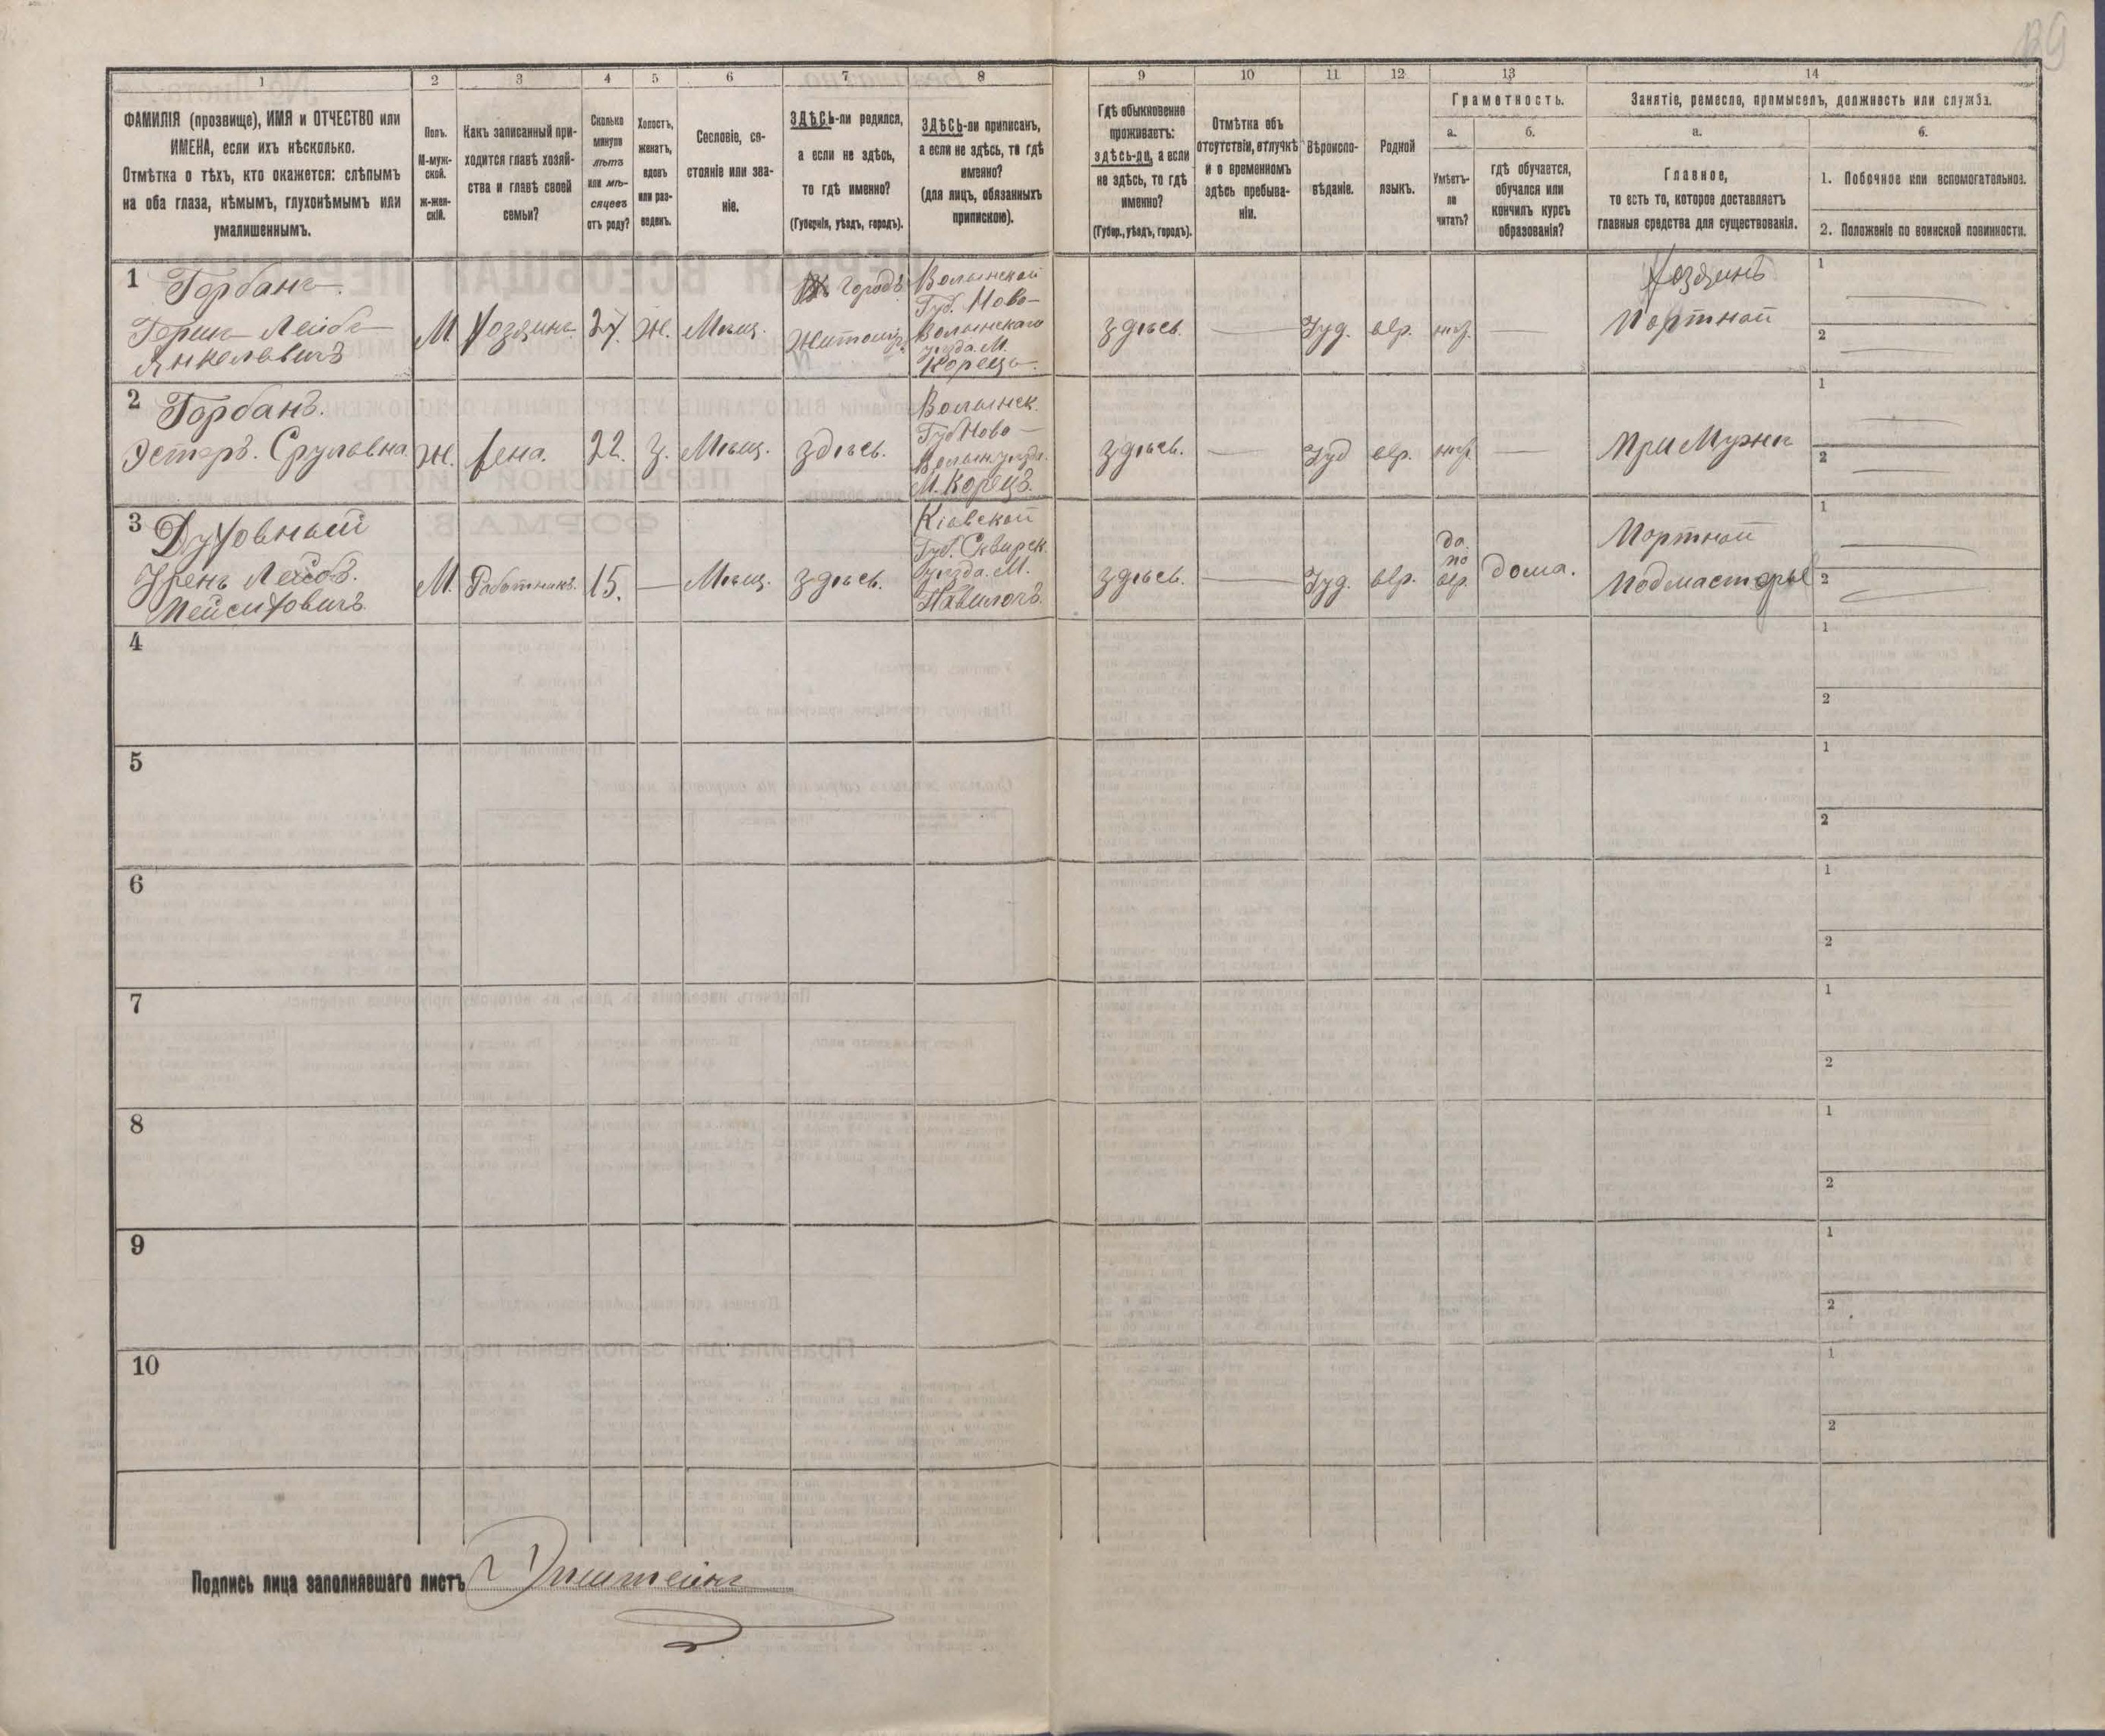 139
1 2 3 4 5 6 7 8 9 10 11 12 13 14
ФАМИЛІЯ (прозвище), ИМЯ и ОТЧЕСТВО или
ИМЕНА, если ихъ нѣсколько.
Отмѣтка о тѣхъ, кто окажется: слѣпымъ
на оба глаза, нѣмымъ, глухонѣмымъ или
умалишеннымъ.
Полъ.
М-муж-
ской.
ж-жен-
скій.
Какъ записанный при-
ходится главѣ хозяй-
ства и главѣ своей
семьи?
Сколько
минуло
лѣтъ
или мѣ-
сяцевъ
отъ роду?
Холостъ,
женатъ,
вдовъ
или раз-
веденъ.
Сословіе, со-
стояніе или зва-
ніе.
ЗДѢСЬ-ли родился,
а если не здѣсь,
то гдѣ именно?
(Губернія, уѣздъ, городъ).
ЗДѢСЬ-ли приписанъ,
а если не здѣсь, то гдѣ
именно?
(для лицъ, обязанныхъ
припискою).
Гдѣ обыкновенно
проживаетъ:
здѣсь-ли, а если
не здѣсь, то гдѣ
именно?
(Губер., уѣздъ, городъ).
Отмѣтка объ
отсутствіи, отлучкѣ
и о временномъ
здѣсь пребыва-
ніи.
Вѣроиспо-
вѣданіе.
Родной
языкъ.
Грамотность.
а.
Умѣетъ-
ли
читать?
б.
гдѣ обучается,
обучался или
кончилъ курсъ
образованія?
Занятіе, ремесло, промыселъ, должность или служба.
а.
Главное,
то есть то, которое доставляетъ
главныя средства для существованія.
б.
1. Побочное или вспомогательное.
2. Положеніе по воинской повинности.
1 Горбанъ.
Гершъ Лейба
Янкелевичъ
М. Хозяинъ 27. Ж. Мѣщ.
Городъ
Житомір.
Волынской
Губ. Ново-
Волынскаго
уѣзда. М.
Корецъ.
здѣсь. — Іуд. евр. нѣт. —
Хозяинъ
Портной
1 —
2 —
2 Горбанъ.
Эстеръ. Сруловна
Ж. жена. 22. З. Мѣщ. здѣсь.
Волынск.
Губ Ново-
Волын уѣзд.
М. Корецъ.
здѣсь. — Іуд евр. нѣт. — При Мужѣ
1 —
2 —
3 Духовный
Лейб.
Пейсиховичъ
М. Работникъ. 15. — Мѣщ. здѣсь.
Кіевской
Губ. Сквирск.
уѣзда. М.
Паволочъ.
здѣсь. — Іуд. евр.
да.
по
евр.
дома.
Портной
Подмастерье
1 —
2 —
4 1
2
5 1
2
6 1
2
7 1
2
8 1
2
9 1
2
10 1
2
Подпись лица заполнявшаго листъ